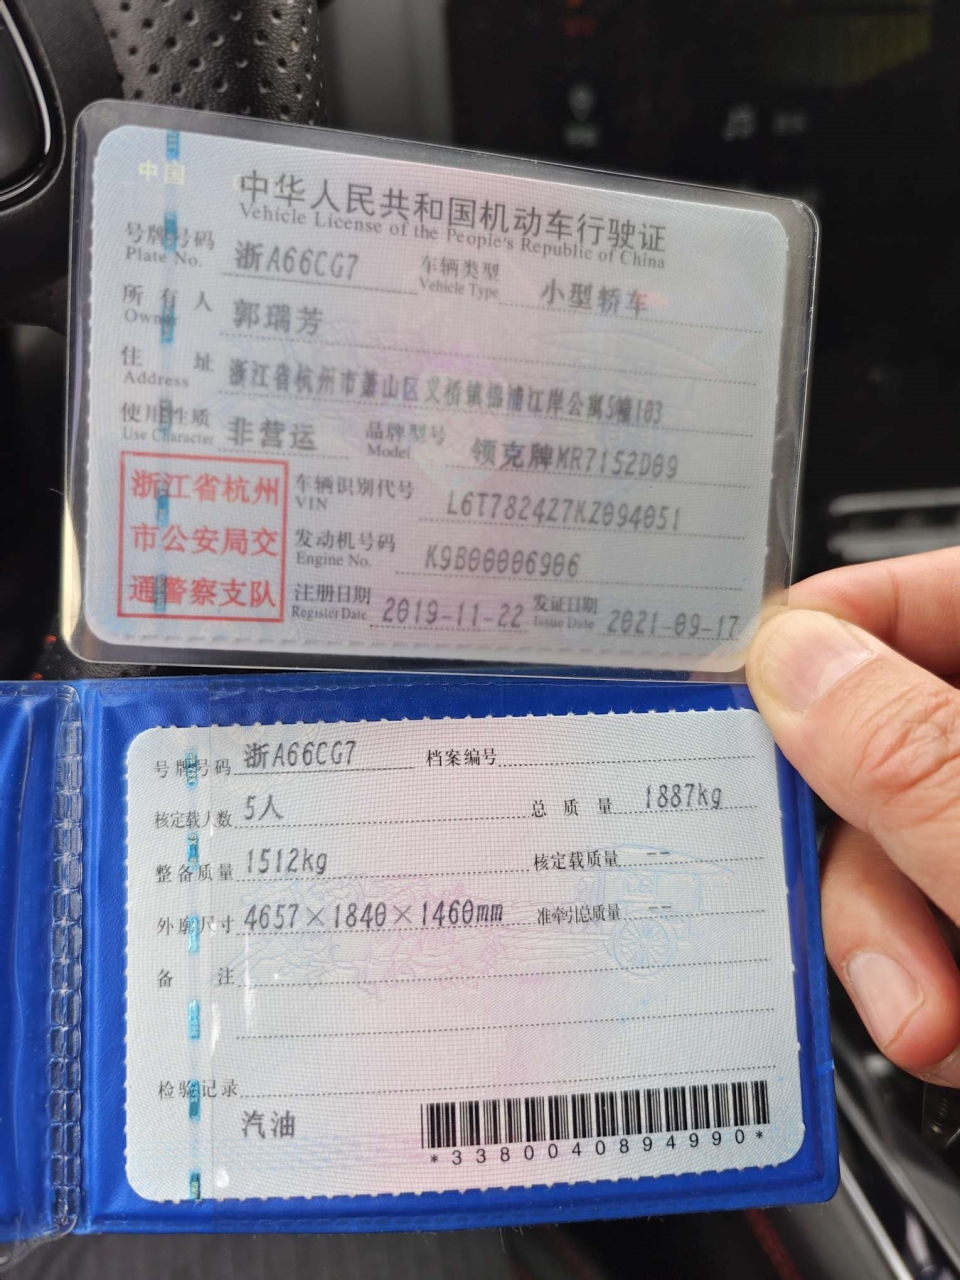 中国
中华人民共和国机动车行驶证
Vehicle License of the People's Republic of China
号牌号码 浙A66CG7 车辆类型 小型轿车
Plate No. Vehicle Type
所有人 郭瑞芳
Owner
住址 浙江省杭州市萧山区义桥镇锦浦江岸公寓5幢103
Address
使用性质 非营运 品牌型号 领克牌MR7152D09
Use Character Model
浙江省杭州
市公安局交
通警察支队
车辆识别代号 L6T7824Z7KZ094051
VIN
发动机号码 K9B00006906
Engine No.
注册日期 2019-11-22 发证日期 2021-09-17
Register Date Issue Date
号牌号码 浙A66CG7 档案编号
核定载人数 5人 总质量 1887kg
整备质量 1512kg 核定载质量 --
外廓尺寸 4657×1840×1460mm 准牵引总质量 --
备注
检验记录
汽油
*3380040894990*